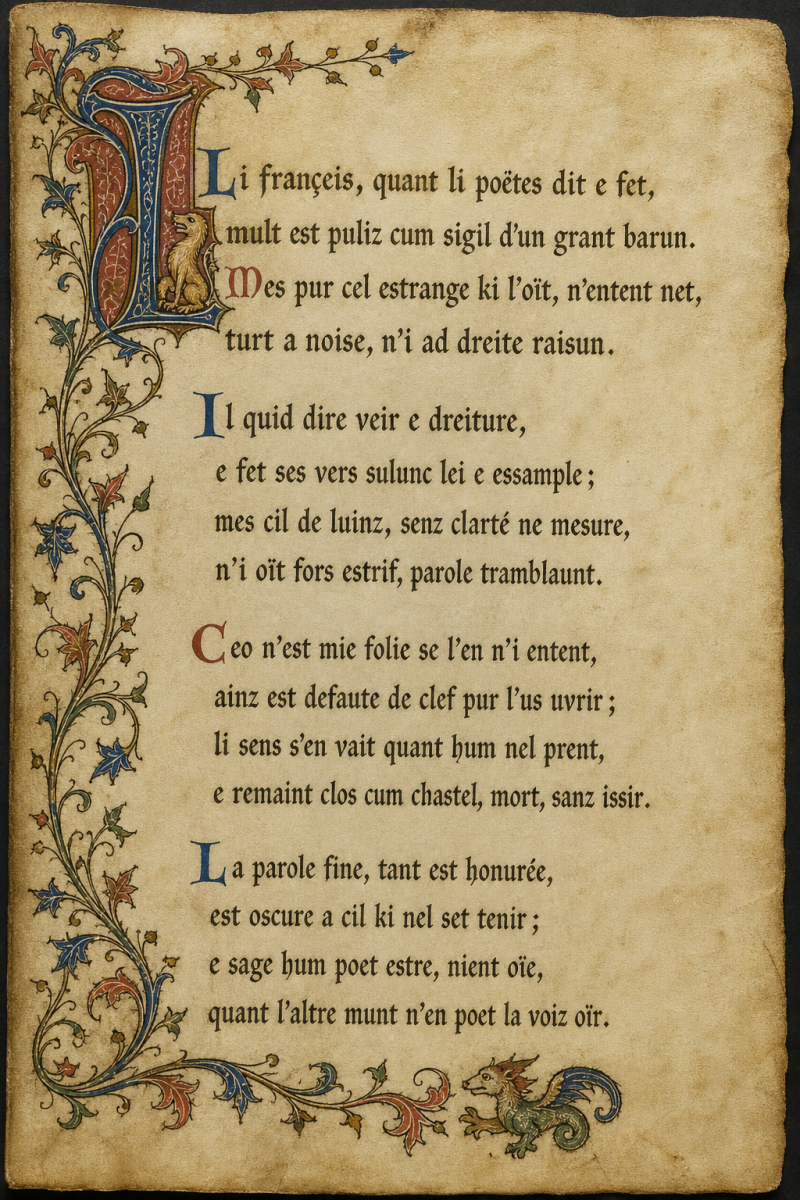 Li françeis, quant li poëtes dit e fet,
mult est puliz cum sigil d'un grant barun.
Mes pur cel estrange ki l'oït, n'entent net,
turt a noise, n'i ad dreite raisun.
Il quid dire veir e dreiture,
e fet ses vers sulunc lei e essample;
mes cil de luinz, senz clarté ne mesure,
n'i oït fors estrif, parole tramblaunt.
Ceo n'est mie folie se l'en n'i entent,
ainz est defaute de clef pur l'us uvrir;
li sens s'en vait quant hum nel prent,
e remaint clos cum chastel, mort, sanz issir.
La parole fine, tant est honurée,
est oscure a cil ki nel set tenir;
e sage hum poet estre, nient oïe,
quant l'altre munt n'en poet la voiz oïr.